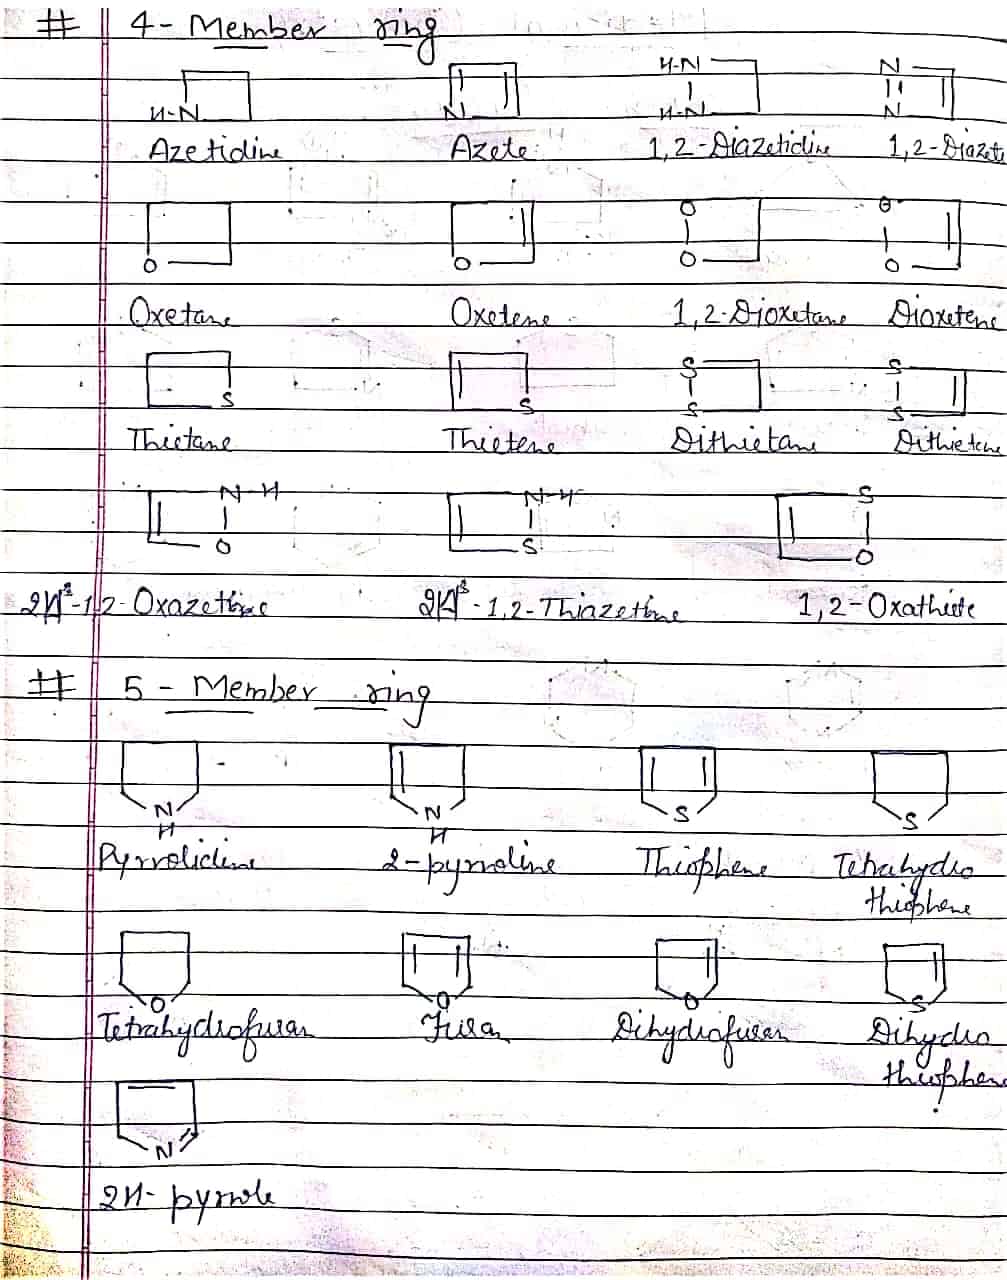 # 4- Member ring
H-N H-N N
H-N N H-N N
Azetidine Azete 1,2-Diazetidine 1,2-Diazete
O O
O O O O
Oxetane Oxetene 1,2-Dioxetane Dioxetene
S S
S S S S
Thietane Thietene Dithietane Dithietene
N-H N-H S
O S O
1,2-Oxazetine 1,2-Thiazetine 1,2-Oxathiete
# 5 - Member ring
N N S S
H H
Pyrrolidine 2-pyrroline Thiophene Tetrahydro
thiophene
O O O S
Tetrahydrofuran Furan Dihydrofuran Dihydro
thiophene
N
2H- pyrrole